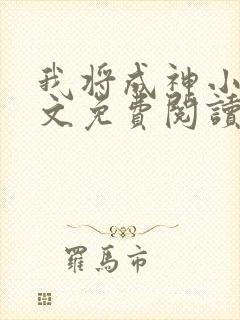 我将成神小
文免費閱讀
羅馬市